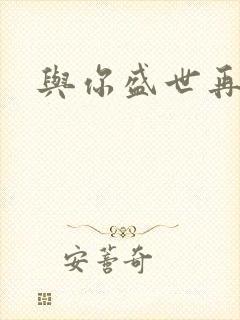 與你盛世再
安萻奇